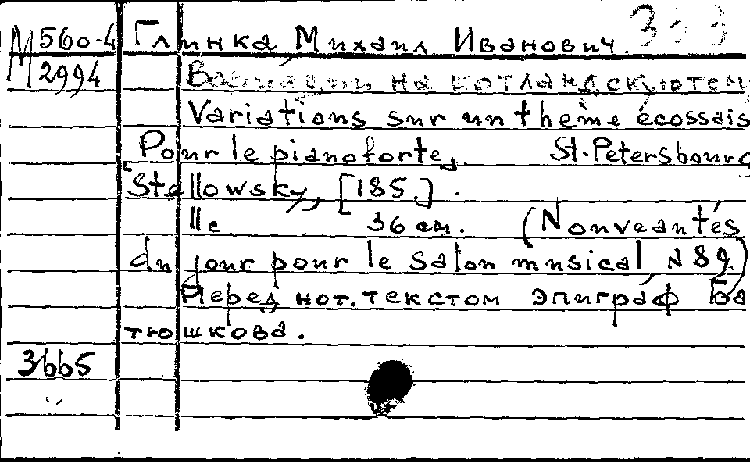 М 560-4 Глинка, Михаил Иванович. 333
2994 Вариации на шотландскую тему
Variations sur un thème écossais
Pour le pianoforte. St.-Petersbourg
Stellowsky, [185 ] .
11 с 36 см. (Nouveautés
du jour pour le salon musical, N 89)
Перед нот. текстом эпиграф Ба
тюшкова.
3665